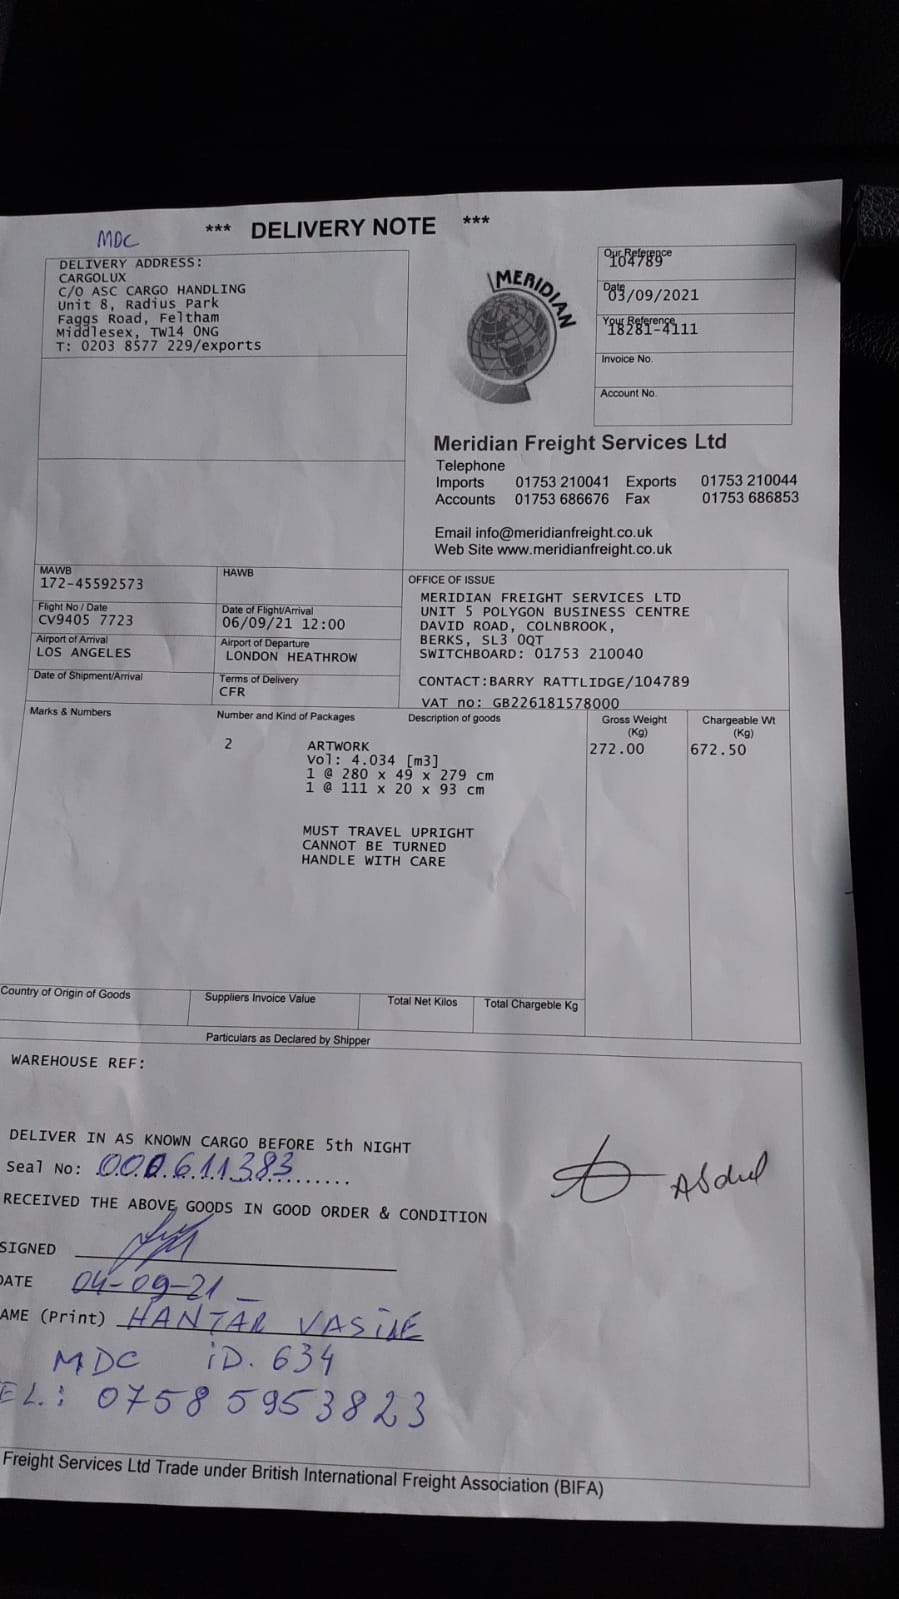 MDC
*** DELIVERY NOTE ***
DELIVERY ADDRESS:
CARGOLUX
C/O ASC CARGO HANDLING
Unit 8, Radius Park
Faggs Road, Feltham
Middlesex, TW14 0NG
T: 0203 8577 229/exports
MERIDIAN
Our Reference
104789
Date
03/09/2021
Your Reference
18281-4111
Invoice No.
Account No.
Meridian Freight Services Ltd
Telephone
Imports 01753 210041 Exports 01753 210044
Accounts 01753 686676 Fax 01753 686853
Email info@meridianfreight.co.uk
Web Site www.meridianfreight.co.uk
MAWB
172-45592573
HAWB
Flight No / Date
CV9405 7723
Date of Flight/Arrival
06/09/21 12:00
Airport of Arrival
LOS ANGELES
Airport of Departure
LONDON HEATHROW
Date of Shipment/Arrival
Terms of Delivery
CFR
OFFICE OF ISSUE
MERIDIAN FREIGHT SERVICES LTD
UNIT 5 POLYGON BUSINESS CENTRE
DAVID ROAD, COLNBROOK,
BERKS, SL3 0QT
SWITCHBOARD: 01753 210040
CONTACT:BARRY RATTLIDGE/104789
VAT no: GB226181578000
Marks & Numbers
Number and Kind of Packages
Description of goods
Gross Weight
(Kg)
Chargeable Wt
(Kg)
2 ARTWORK 272.00 672.50
Vol: 4.034 [m3]
1 @ 280 x 49 x 279 cm
1 @ 111 x 20 x 93 cm
MUST TRAVEL UPRIGHT
CANNOT BE TURNED
HANDLE WITH CARE
Country of Origin of Goods
Suppliers Invoice Value
Total Net Kilos
Total Chargeble Kg
Particulars as Declared by Shipper
WAREHOUSE REF:
DELIVER IN AS KNOWN CARGO BEFORE 5th NIGHT
Seal No: 000611383
RECEIVED THE ABOVE GOODS IN GOOD ORDER & CONDITION
Abdul
SIGNED
DATE 04-09-21
AME (Print) HANTAR VASILE
MDC iD. 634
EL.: 07585953823
Freight Services Ltd Trade under British International Freight Association (BIFA)